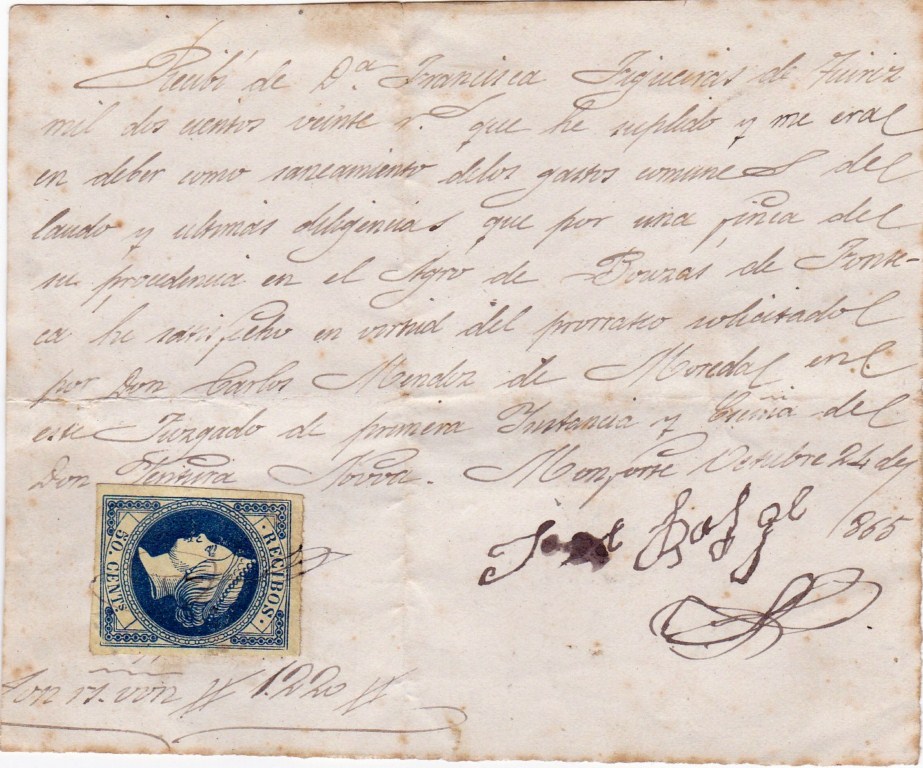 Recibí de D.ª Francisca Figueiras de Tuiriz
mil dos cientos veinte r.s que he suplido y me era
en deber como saneamiento delos gastos comunes del
laudo y ultimas diligencias que por una finca de
su procedencia en el Agro de Bouzas de Fonte-
ca he satisfecho en virtud del prorrateo solicitado
por Don Carlos Mendez de Moreda en
este Juzgado de primera Instancia y Escñia de
Don Ventura Novoa. Monforte Octubre 24 de
1865
Jose
RECIBOS.
50. CENTs.
Son rs. von # 1.220 #